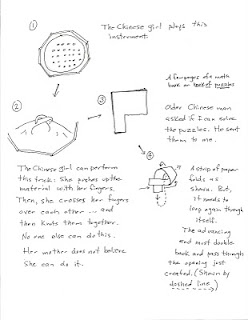 1
The Chinese girl plays this
instrument.
2
3
A few pages of a math
book or book of puzzles
Older Chinese man
asked if I can solve
the puzzles. He sent
them to me.
4
The Chinese girl can perform
this trick: She pushes up the
material with her fingers.
Then, she crosses her fingers
over each other -- and
then knits them together.
No one else can do this.
Her mother does not believe
she can do it.
A strip of paper
folds as
shown. But,
it needs to
loop again through
itself.
The advancing
end must double
back and pass through
the opening just
created. (Shown by
dashed line.)